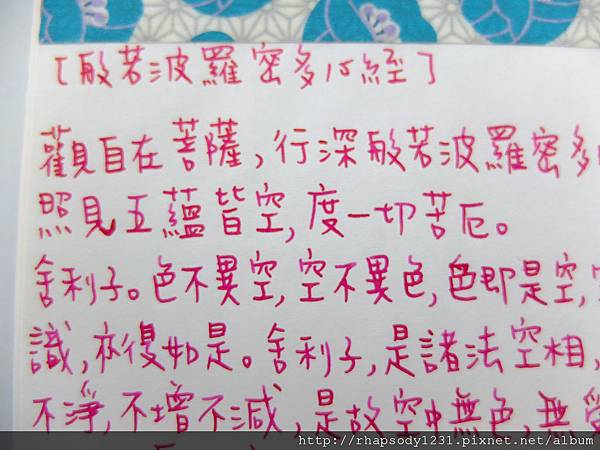 [般若波羅密多心經]
觀自在菩薩,行深般若波羅密多
照見五蘊皆空,度一切苦厄。
舍利子。色不異空,空不異色,色即是空,
識,亦復如是。舍利子,是諸法空相,
不淨,不增不減,是故空中無色,無受
http://rhapsody1231.pixnet.net/album